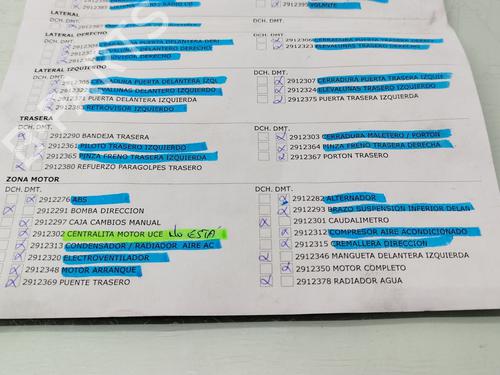 2912383 
2912395 VOLANTE
LATERAL
DCH. DMT.
LATERAL DERECHO
DCH. DMT.
PUERTA DELANTERA DERE
2912304 CERRADURA PUERTA TRASERA DEREC
DERECHO
2912323 ELEVALUNAS TRASERO DERECHO
DERECHO
LATERAL IZQUIERDO
DCH. DMT.
CERRADURA PUERTA DELANTERA IZQU
2912307 CERRADURA PUERTA TRASERA IZQUIE
2912322 ELEVALUNAS DELANTERO IZQUIERDO
2912324 ELEVALUNAS TRASERO IZQUIERDO
2912371 PUERTA DELANTERA IZQUIERDA
2912375 PUERTA TRASERA IZQUIERDA
2912379 RETROVISOR IZQUIERDO
TRASERA
DCH. DMT.
2912290 BANDEJA TRASERA
2912303 CERRADURA MALETERO / PORTON
2912361 PILOTO TRASERO IZQUIERDO
2912364 PINZA FRENO TRASERA DERECHA
2912365 PINZA FRENO TRASERA IZQUIERDA
2912367 PORTON TRASERO
2912380 REFUERZO PARAGOLPES TRASERO
ZONA MOTOR
DCH. DMT.
DCH. DMT.
2912276 ABS
2912282 ALTERNADOR
2912291 BOMBA DIRECCION
2912293 BRAZO SUSPENSION INFERIOR DELAN
2912297 CAJA CAMBIOS MANUAL
2912301 CAUDALIMETRO
2912302 CENTRALITA MOTOR UCE NO ESTA
2912312 COMPRESOR AIRE ACONDICIONADO
2912313 CONDENSADOR / RADIADOR AIRE AC
2912315 CREMALLERA DIRECCION
2912320 ELECTROVENTILADOR
2912346 MANGUETA DELANTERA IZQUIERDA
2912348 MOTOR ARRANQUE
2912350 MOTOR COMPLETO
2912369 PUENTE TRASERO
2912378 RADIADOR AGUA